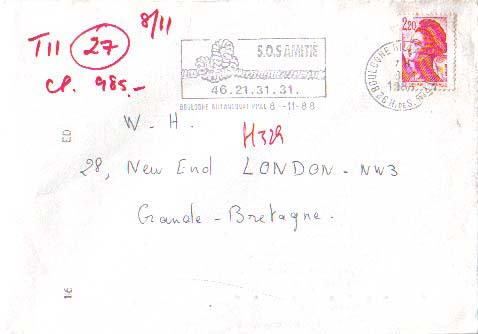 8/11
T11 27
cp. 985-
S.O.S AMITIE
46.21.31.31.
BOULOGNE BILLANCOURT PPAL 8 -11-88
2,20
BOULOGNE
92 H. DE S.
W - H.
H329
28, New End LONDON - NW3
Grande - Bretagne.